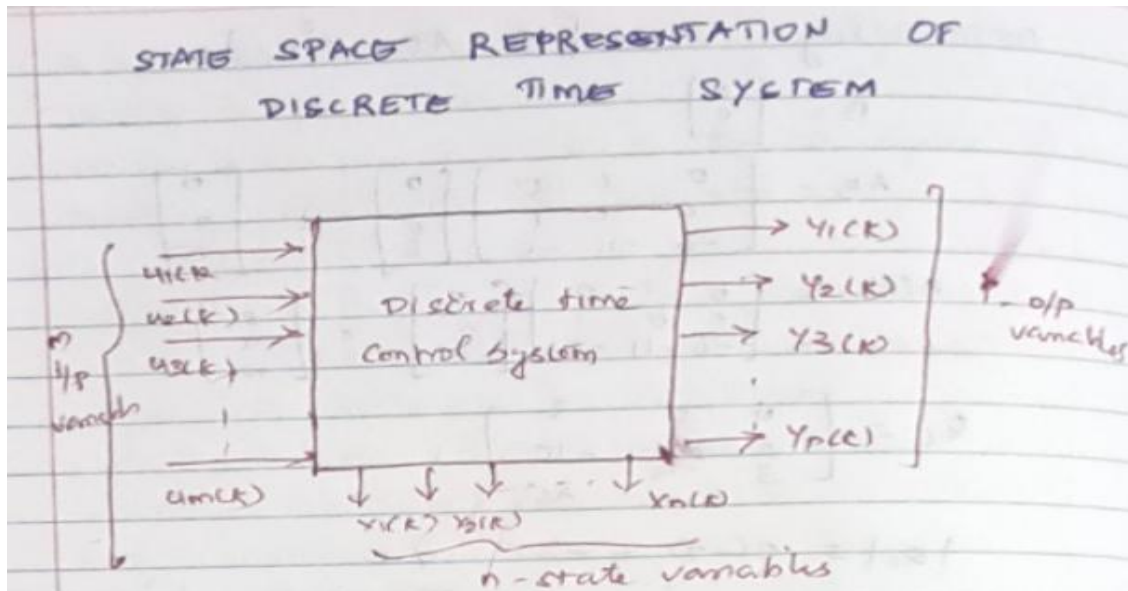 STATE SPACE REPRESENTATION OF
DISCRETE TIME SYSTEM
u1(k
u2(k)
u3(k)
um(k)
m
i/p
Discrete time
control system
y1(k)
y2(k)
y3(k)
o/p
variables
x1(k) x2(k)
xn(k)
n-state variables